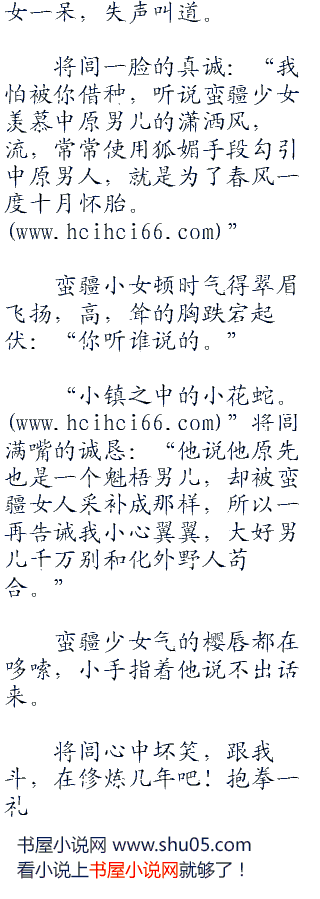 女一呆，失声叫道。
将闾一脸的真诚：“我
怕被你借种，听说蛮疆少女
羡慕中原男儿的潇洒风，
流，常常使用狐媚手段勾引
中原男人，就是为了春风一
度十月怀胎。
(www.hcihci66.com)”
蛮疆小女顿时气得翠眉
飞扬，高，耸的胸跌宕起
伏：“你听谁说的。”
“小镇之中的小花蛇。
(www.hcihci66.com)”将闾
满嘴的诚恳：“他说他原先
也是一个魁梧男儿，却被蛮
疆女人采补成那样，所以一
再告诫我小心翼翼，大好男
儿千万别和化外野人苟
合。”
蛮疆少女气的樱唇都在
哆嗦，小手指着他说不出话
来。
将闾心中坏笑，跟我
斗，在修炼几年吧！抱拳一
礼
书屋小说网 www.shu05.com
看小说上书屋小说网就够了！